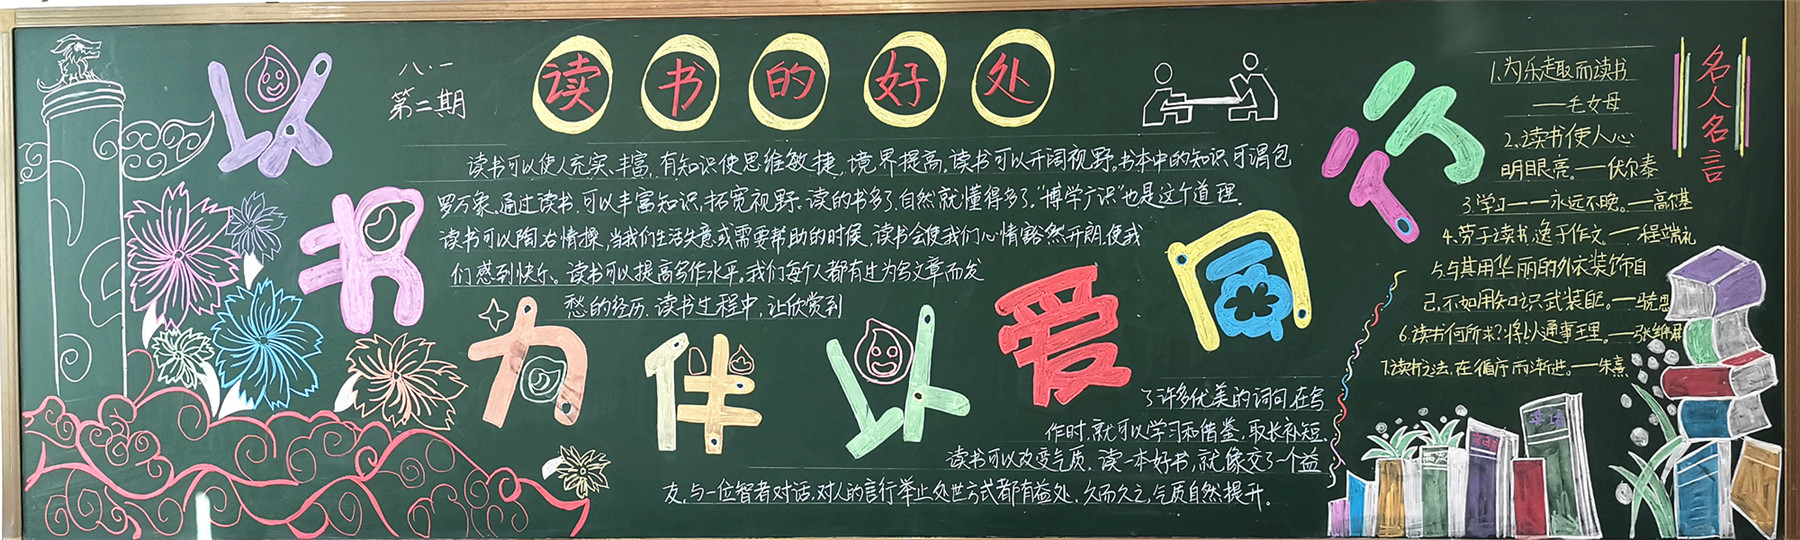 以书为伴以爱同行
八.一
第二期
读书的好处
读书可以使人充实、丰富,有知识使思维敏捷,境界提高。读书可以开阔视野。书本中的知识可谓包
罗万象。通过读书,可以丰富知识,拓宽视野。读的书多了,自然就懂得多了,“博学广识”也是这个道理。
读书可以陶冶情操,当我们生活失意或需要帮助的时候,读书会使我们心情豁然开朗,使我
们感到快乐。读书可以提高写作水平。我们每个人都有过为写文章而发
愁的经历,读书过程中,让欣赏到
了许多优美的词句,在写
作时,就可以学习和借鉴,取长补短。
读书可以改变气质,读一本好书,就像交了一个益
友,与一位智者对话,对人的言行举止处世方式都有益处,久而久之,气质自然提升。
名人名言
1.为乐趣而读书
——毛姆
2.读书使人心
明眼亮。——伏尔泰
3.学习——永远不晚。——高尔基
4.劳于读书,逸于作文。——程端礼
5.与其用华丽的外衣装饰自
己,不如用知识武装自己。——马克思
6.读书何所求?将以通事理。——张维屏
7.读书之法,在循序而渐进。——朱熹